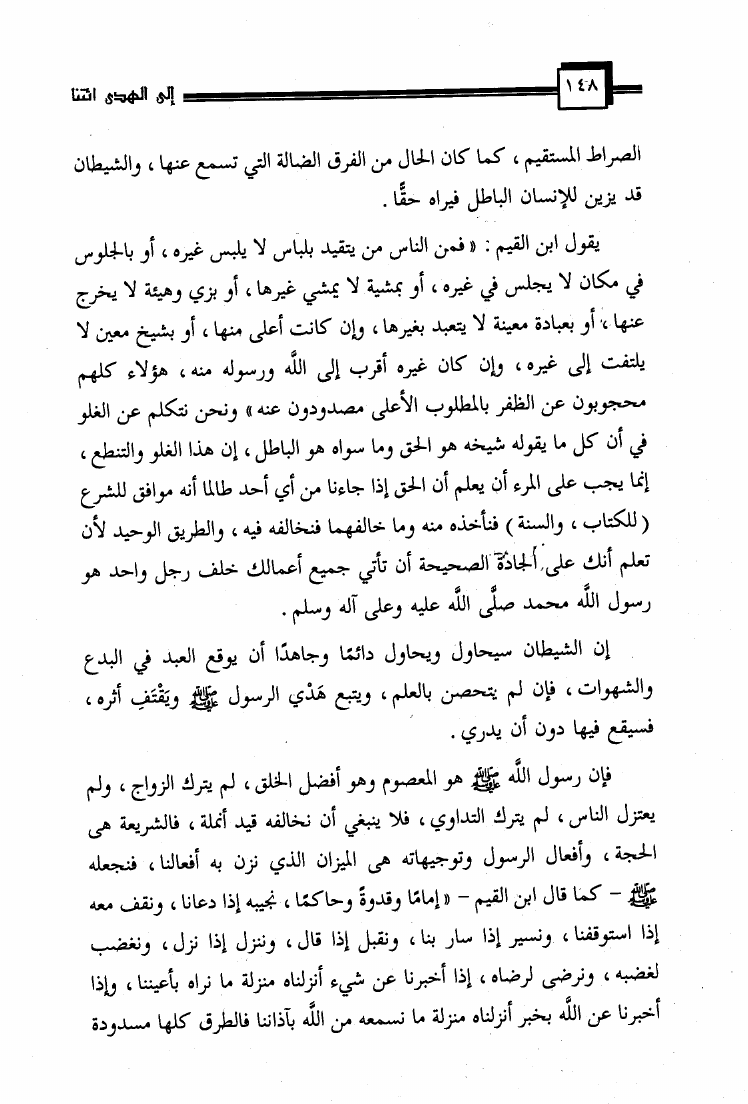 ١٤٨ إلى الهدى ائتنا
الصراط المستقيم ، كما كان الحال من الفرق الضالة التي تسمع عنها ، والشيطان
قد يزين للإنسان الباطل فيراه حقًّا .
يقول ابن القيم : « فمن الناس من يتقيد بلباس لا يلبس غيره ، أو بالجلوس
في مكان لا يجلس في غيره ، أو بمشية لا يمشي غيرها ، أو بزي وهيئة لا يخرج
عنها ، أو بعبادة معينة لا يتعبد بغيرها ، وإن كانت أعلى منها ، أو بشيخ معين لا
يلتفت إلى غيره ، وإن كان غيره أقرب إلى اللَّه ورسوله منه ، هؤلاء كلهم
محجوبون عن الظفر بالمطلوب الأعلى مصدودون عنه » ونحن نتكلم عن الغلو
في أن كل ما يقوله شيخه هو الحق وما سواه هو الباطل ، إن هذا الغلو والتنطع ،
إنما يجب على المرء أن يعلم أن الحق إذا جاءنا من أي أحد طالما أنه موافق للشرع
( للكتاب ، والسنة ) فنأخذه منه وما خالفهما فنخالفه فيه ، والطريق الوحيد لأن
تعلم أنك على الجادة الصحيحة أن تأتي جميع أعمالك خلف رجل واحد هو
رسول اللَّه محمد صلَّى اللَّه عليه وعلى آله وسلم .
إن الشيطان سيحاول ويحاول دائمًا وجاهدًا أن يوقع العبد في البدع
والشهوات ، فإن لم يتحصن بالعلم ، ويتبع هَدْي الرسول ﷺ ويَقْتَفِ أثره ،
فسيقع فيها دون أن يدري .
فإن رسول اللَّه ﷺ هو المعصوم وهو أفضل الخلق ، لم يترك الزواج ، ولم
يعتزل الناس ، لم يترك التداوي ، فلا ينبغي أن نخالفه قيد أنملة ، فالشريعة هى
الحجة ، وأفعال الرسول وتوجيهاته هى الميزان الذي نزن به أفعالنا ، فنجعله
ﷺ – كما قال ابن القيم – « إمامًا وقدوةً وحاكمًا ، نجيبه إذا دعانا ، ونقف معه
إذا استوقفنا ، ونسير إذا سار بنا ، ونقبل إذا قال ، وننزل إذا نزل ، ونغضب
لغضبه ، ونرضى لرضاه ، إذا أخبرنا عن شيء أنزلناه منزلة ما نراه بأعيننا ، وإذا
أخبرنا عن اللَّه بخبر أنزلناه منزلة ما نسمعه من اللَّه بآذاننا فالطرق كلها مسدودة